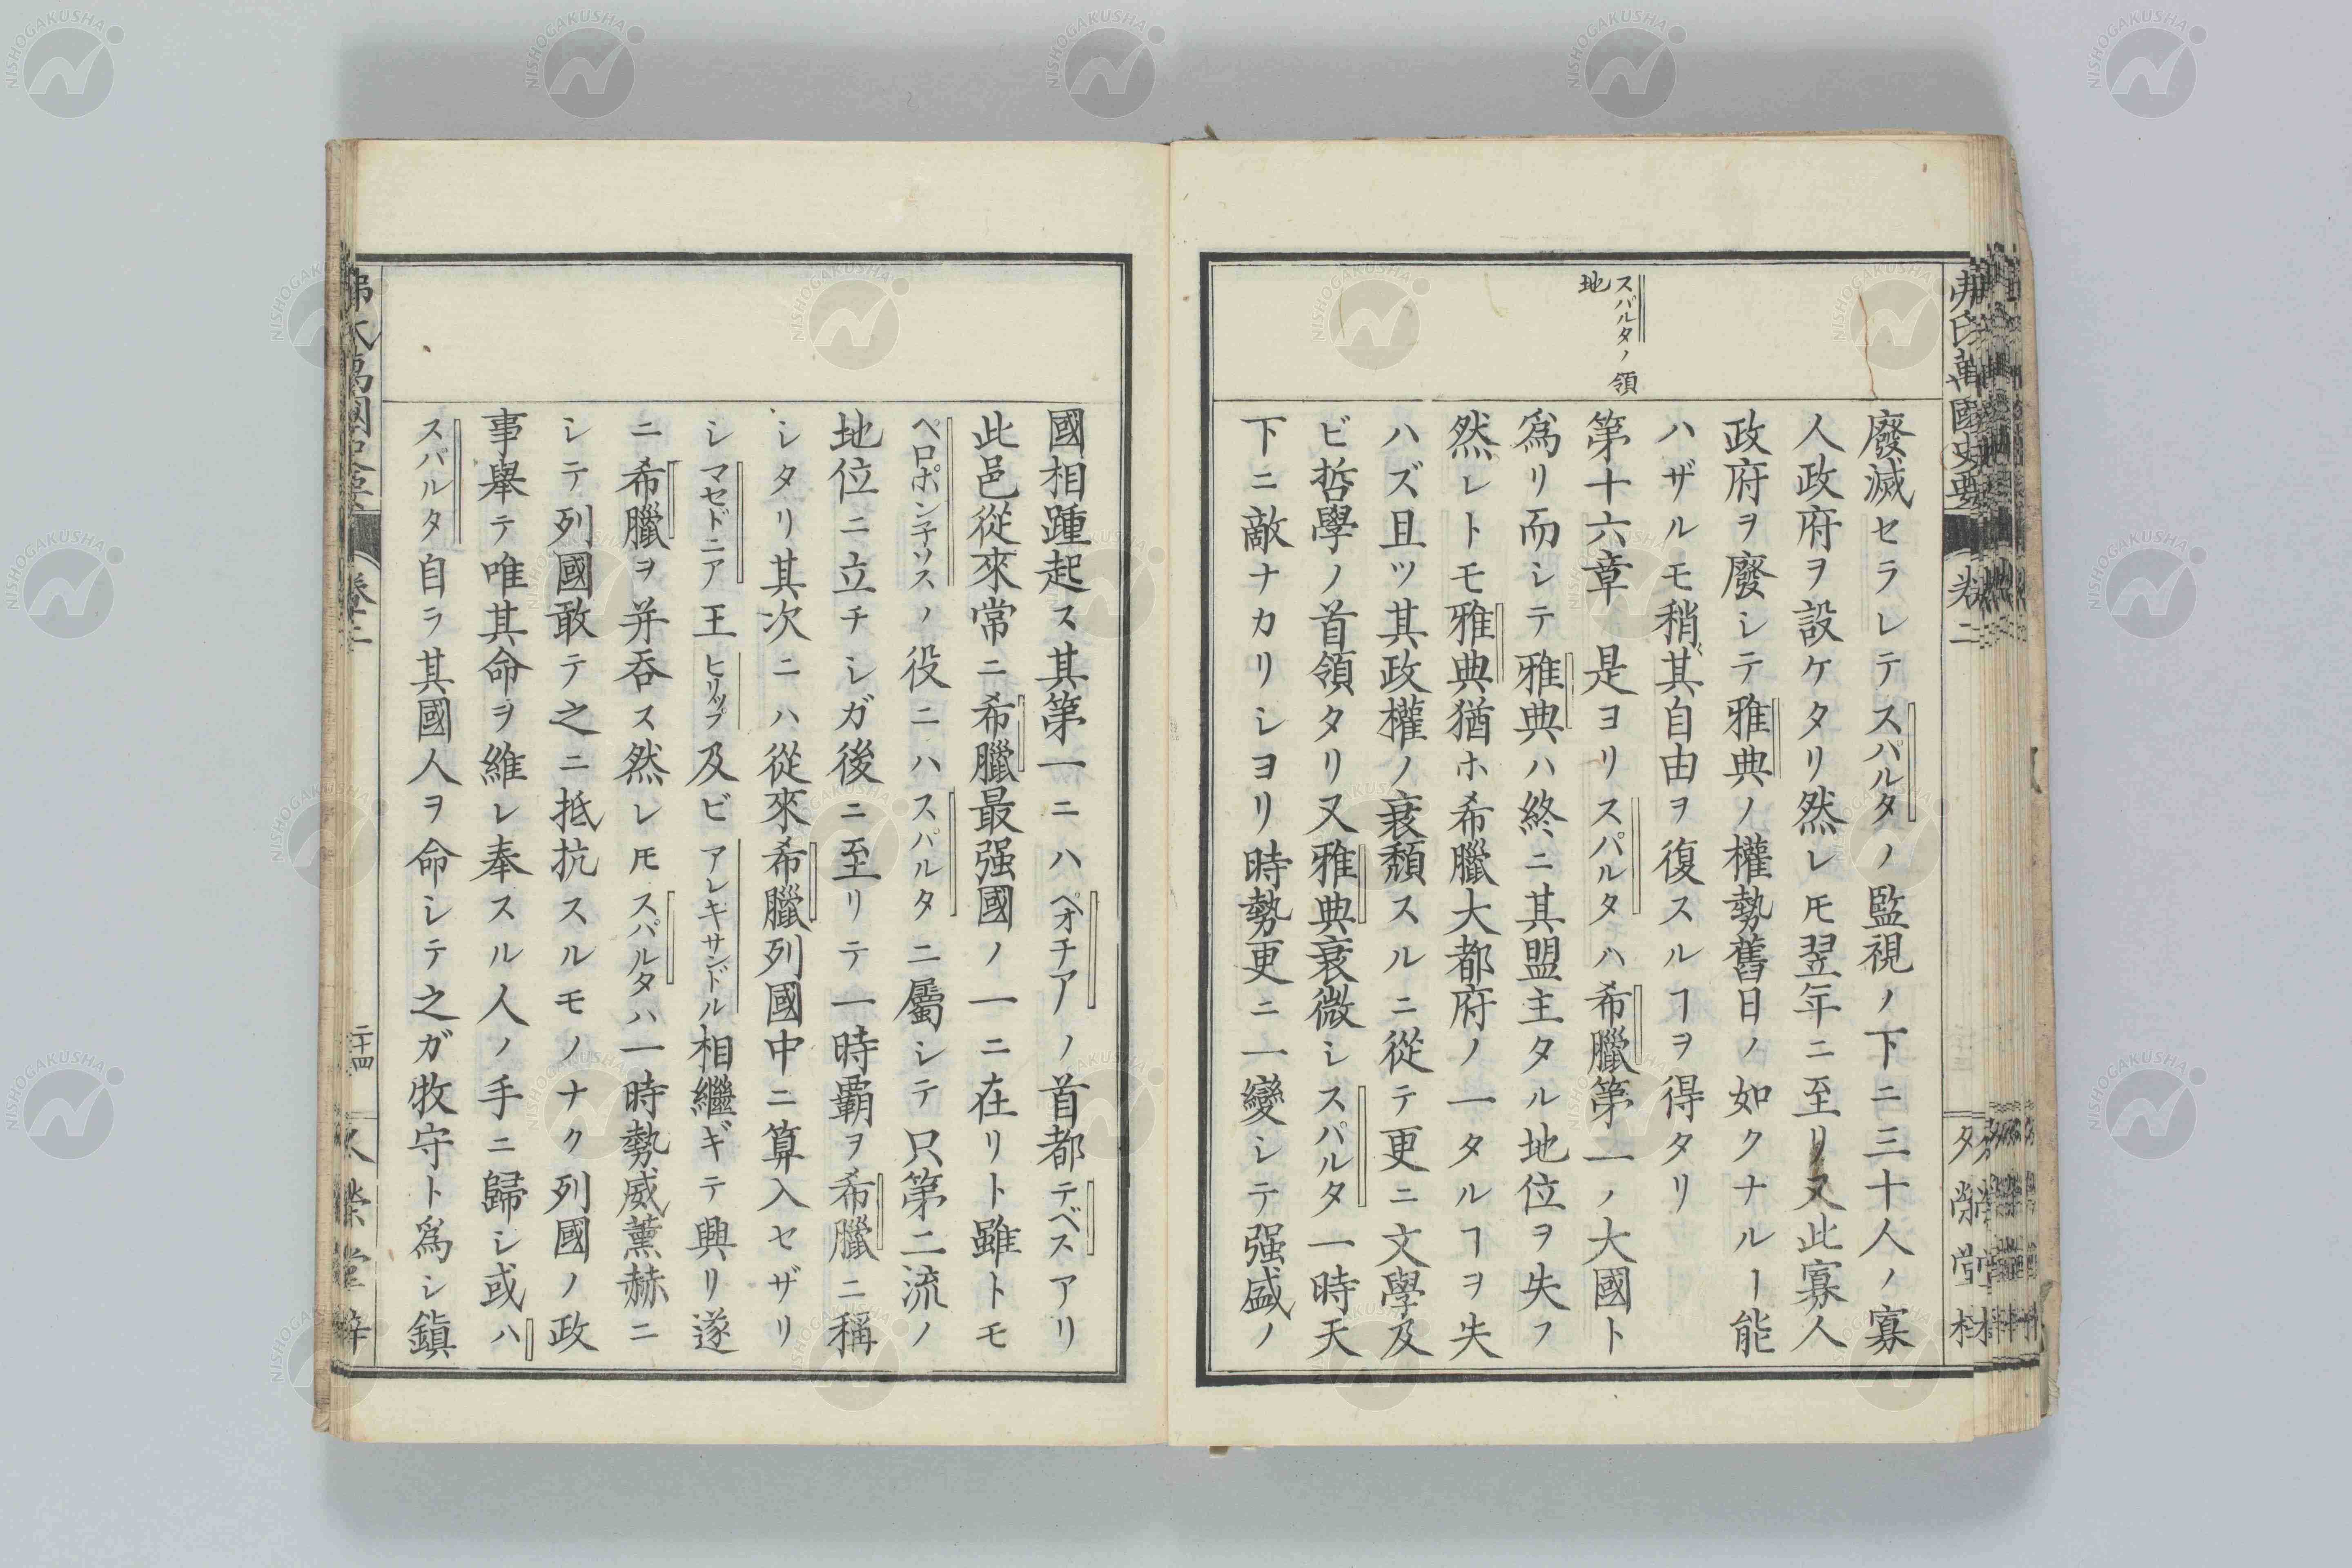 弗氏萬國史要
卷二
スパルタノ領
地
廢滅セラレテスパルタノ監視ノ下ニ三十人ノ寡
人政府ヲ設ケタリ然レ𪜈翌年ニ至リ又此寡人
政府ヲ廢シテ雅典ノ權勢舊日ノ如クナルー能
ハザルモ稍其自由ヲ復スルヿヲ得タリ
第十六章　是ヨリスパルタハ希臘第一ノ大國ト
爲リ而シテ雅典ハ終ニ其盟主タル地位ヲ失フ
然レトモ雅典猶ホ希臘大都府ノ一タルヿヲ失
ハズ且ツ其政權ノ衰頽スルニ從テ更ニ文學及
ビ哲學ノ首領タリ又雅典衰微シスパルタ一時天
下ニ敵ナカリシヨリ時勢更ニ一變シテ强盛ノ
國相踵起ス其第一ニハペオチアノ首都テベスアリ
此邑從來常ニ希臘最强國ノ一ニ在リト雖トモ
ペロポン子ソスノ役ニハスパルタニ屬シテ只第二流ノ
地位ニ立チシガ後ニ至リテ一時覇ヲ希臘ニ稱
シタリ其次ニハ從來希臘列國中ニ算入セザリ
シマセドニア王ヒリップ及ビアレキサンドル相繼ギテ興リ遂
ニ希臘ヲ并呑ス然レ𪜈スパルタハ一時勢威薰赫ニ
シテ列國敢テ之ニ抵抗スルモノナク列國ノ政
事舉テ唯其命ヲ維レ奉スル人ノ手ニ歸シ或ハ
スパルタ自ラ其國人ヲ命シテ之ガ牧守ト爲シ鎭
二十四
NISHOGAKUSHA